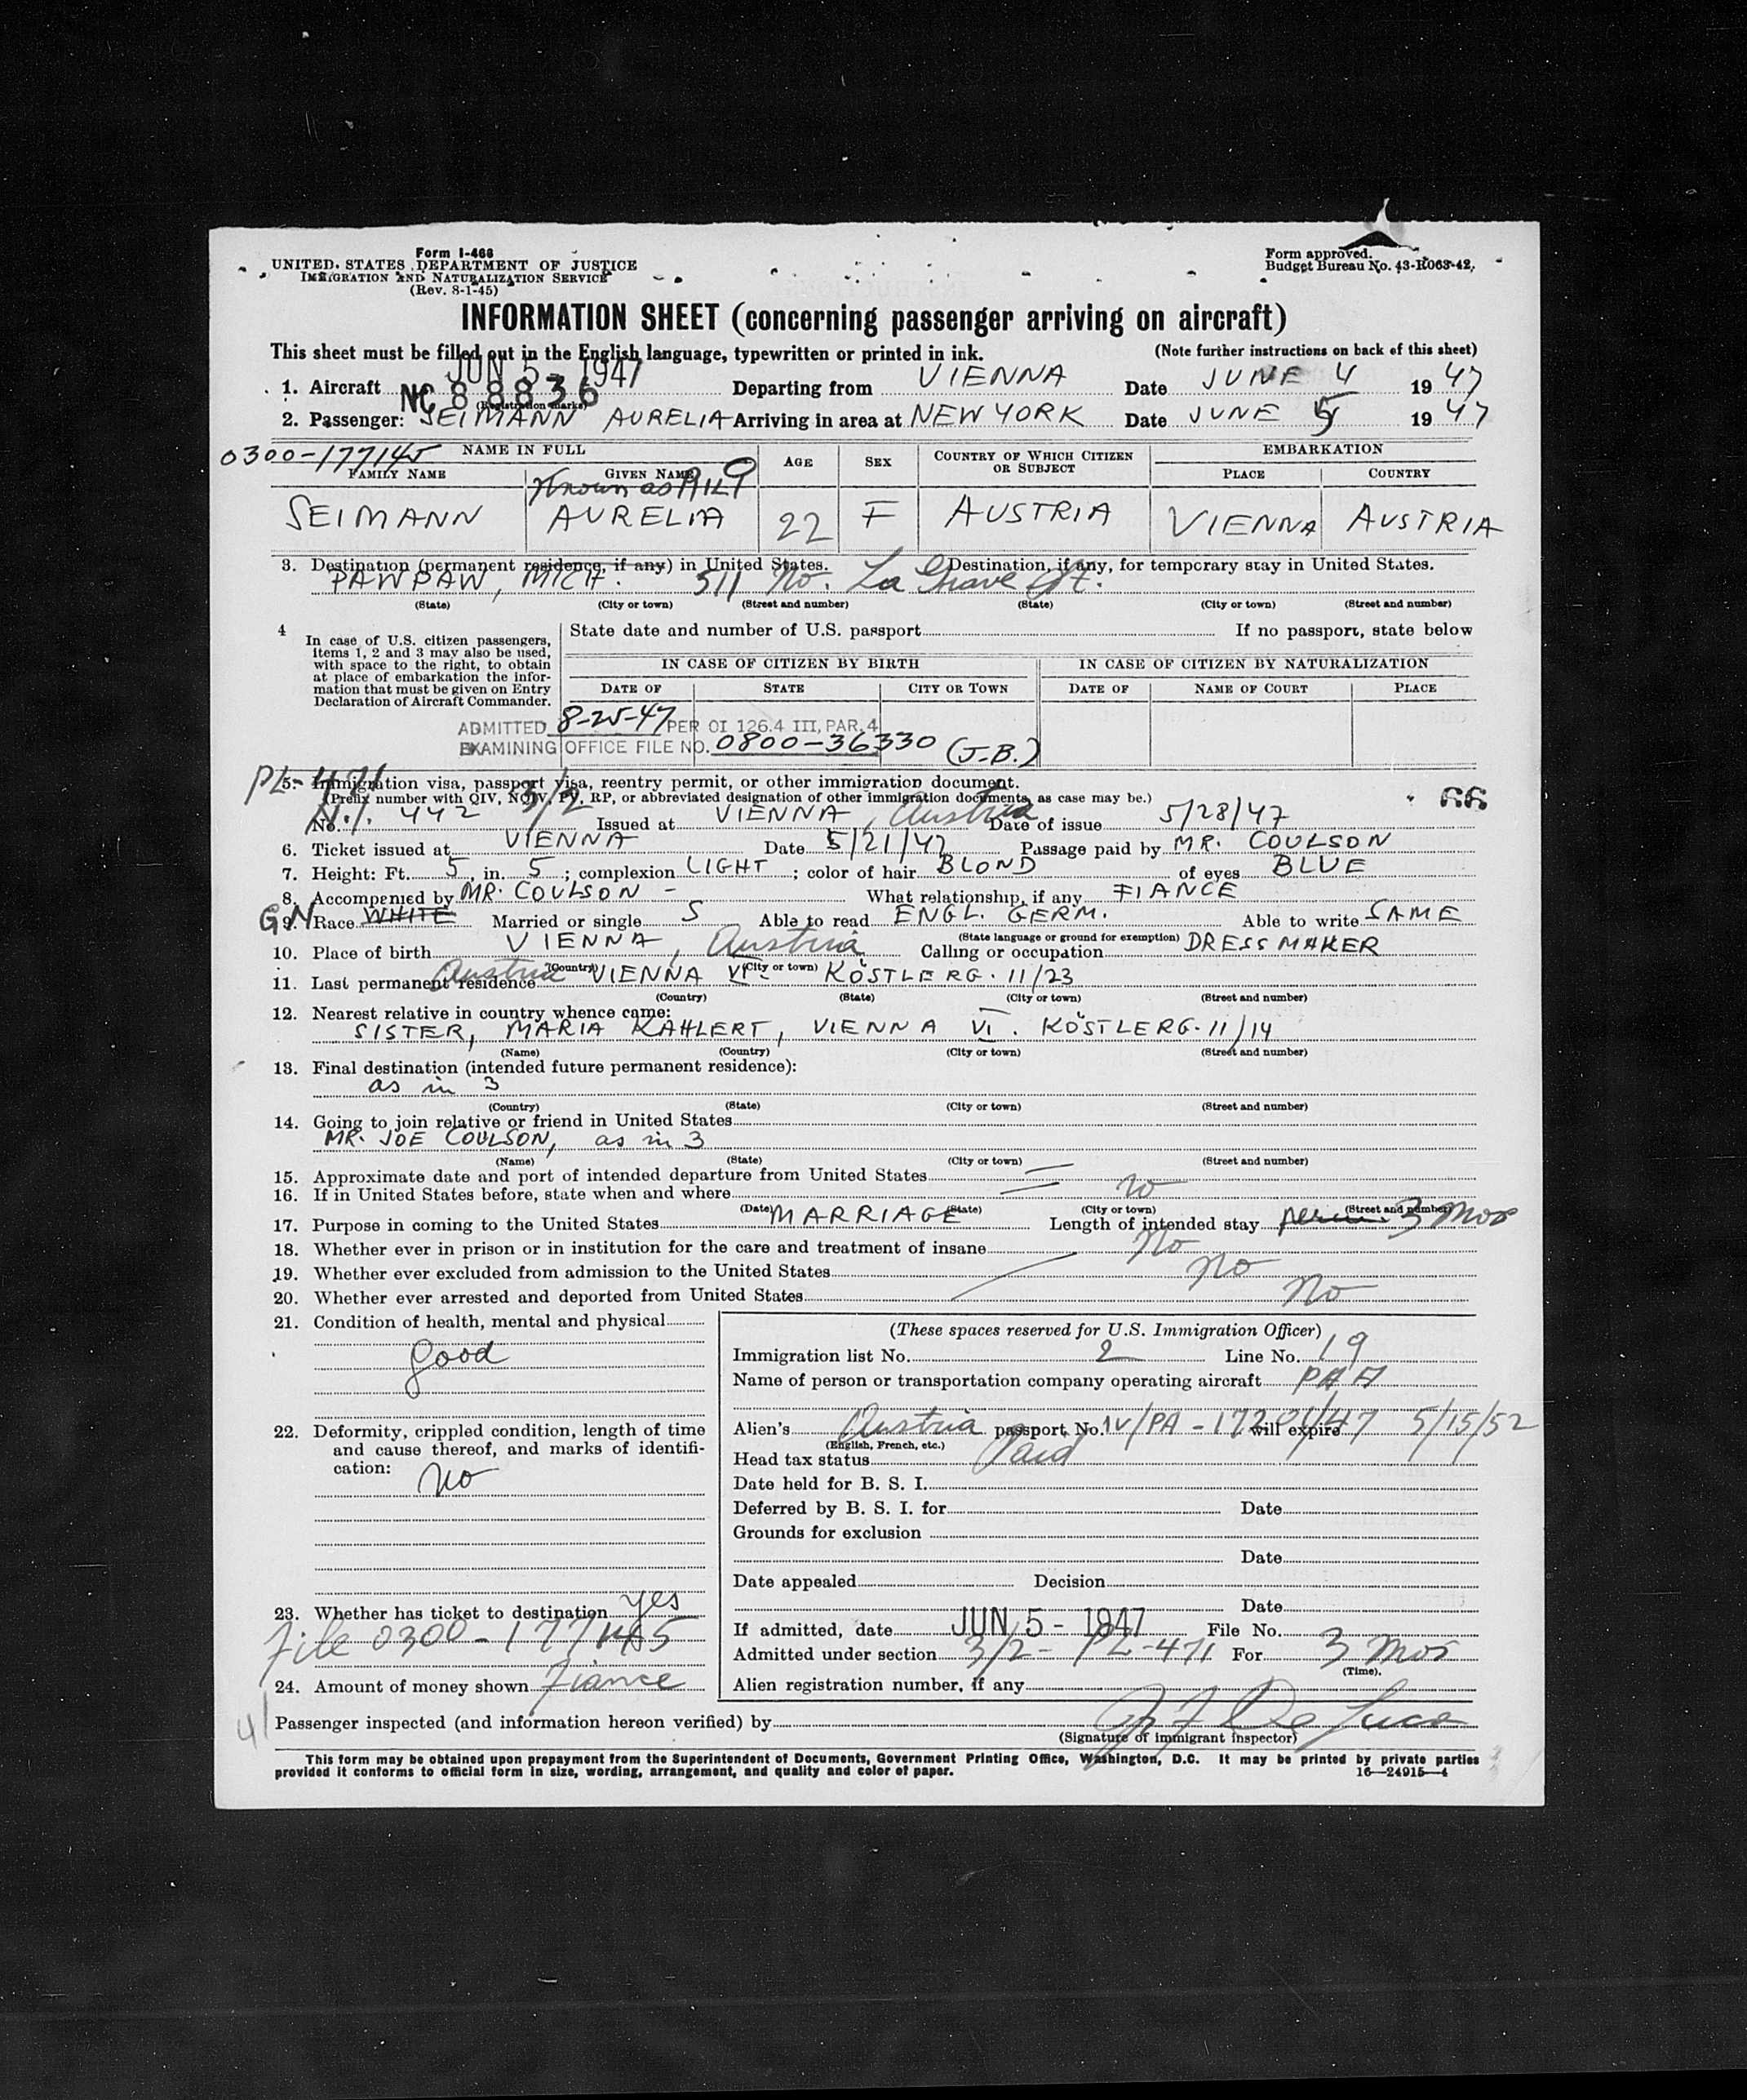 Form I-466
UNITED STATES DEPARTMENT OF JUSTICE
IMMIGRATION AND NATURALIZATION SERVICE
(Rev. 8-1-45)
Form approved.
Budget Bureau No. 43-R063-42.
INFORMATION SHEET (concerning passenger arriving on aircraft)
This sheet must be filled out in the English language, typewritten or printed in ink. (Note further instructions on back of this sheet)
JUN 5 - 1947
1. Aircraft NC 88836 Departing from VIENNA Date JUNE 4 1947
(Registration marks)
2. Passenger: SEIMANN AURELIA Arriving in area at NEW YORK Date JUNE 5 1947
0300-177145 NAME IN FULL AGE SEX COUNTRY OF WHICH CITIZEN OR SUBJECT EMBARKATION
FAMILY NAME GIVEN NAME PLACE COUNTRY
Known as
SEIMANN AURELIA 22 F AUSTRIA VIENNA AUSTRIA
3. Destination (permanent residence, if any) in United States. Destination, if any, for temporary stay in United States.
PAWPAW, MICH. 511 No. La Grave St.
(State) (City or town) (Street and number) (State) (City or town) (Street and number)
4 In case of U.S. citizen passengers, items 1, 2 and 3 may also be used, with space to the right, to obtain at place of embarkation the information that must be given on Entry Declaration of Aircraft Commander.
State date and number of U.S. passport If no passport, state below
IN CASE OF CITIZEN BY BIRTH IN CASE OF CITIZEN BY NATURALIZATION
DATE OF STATE CITY OR TOWN DATE OF NAME OF COURT PLACE
ADMITTED 8-25-47 PER OI 126.4 III, PAR. 4
EXAMINING OFFICE FILE NO. 0800-36330 (J.B.)
PL-471
5. Immigration visa, passport visa, reentry permit, or other immigration document.
(Prefix number with QIV, NQIV, PV, RP, or abbreviated designation of other immigration documents, as case may be.) 66
3/2
No. 442 Issued at VIENNA, Austria Date of issue 5/28/47
6. Ticket issued at VIENNA Date 5/21/47 Passage paid by MR. COULSON
7. Height: Ft. 5, in. 5; complexion LIGHT; color of hair BLOND of eyes BLUE
8. Accompanied by MR. COULSON - What relationship, if any FIANCE
GN 9. Race WHITE Married or single S Able to read ENGL. GERM. Able to write SAME
(State language or ground for exemption)
10. Place of birth VIENNA, Austria Calling or occupation DRESSMAKER
(Country) (City or town)
11. Last permanent residence Austria VIENNA VI. KÖSTLERG. 11/23
(Country) (State) (City or town) (Street and number)
12. Nearest relative in country whence came:
SISTER, MARIA KAHLERT, VIENNA VI. KÖSTLERG. 11/14
(Name) (Country) (City or town) (Street and number)
13. Final destination (intended future permanent residence):
as in 3
(Country) (State) (City or town) (Street and number)
14. Going to join relative or friend in United States
MR. JOE COULSON, as in 3
(Name) (State) (City or town) (Street and number)
15. Approximate date and port of intended departure from United States
16. If in United States before, state when and where no
(Date) (State) (City or town) (Street and number)
17. Purpose in coming to the United States MARRIAGE Length of intended stay perm. 3 Mos
18. Whether ever in prison or in institution for the care and treatment of insane No
19. Whether ever excluded from admission to the United States No
20. Whether ever arrested and deported from United States No
21. Condition of health, mental and physical
good
22. Deformity, crippled condition, length of time and cause thereof, and marks of identification:
No
23. Whether has ticket to destination yes
File 0300-177145
24. Amount of money shown Fiance
41
(These spaces reserved for U.S. Immigration Officer)
Immigration list No. 2 Line No. 19
Name of person or transportation company operating aircraft PAA
Alien's Austria passport No. IV/PA-17201/47 will expire 5/15/52
(English, French, etc.)
Head tax status Paid
Date held for B. S. I.
Deferred by B. S. I. for Date
Grounds for exclusion
Date
Date appealed Decision
Date
If admitted, date JUN 5 - 1947 File No.
Admitted under section 3/2 - PL-471 For 3 Mos
(Time).
Alien registration number, if any
Passenger inspected (and information hereon verified) by De Luca
(Signature of immigrant inspector)
This form may be obtained upon prepayment from the Superintendent of Documents, Government Printing Office, Washington, D.C. It may be printed by private parties
provided it conforms to official form in size, wording, arrangement, and quality and color of paper. 16—24915-4